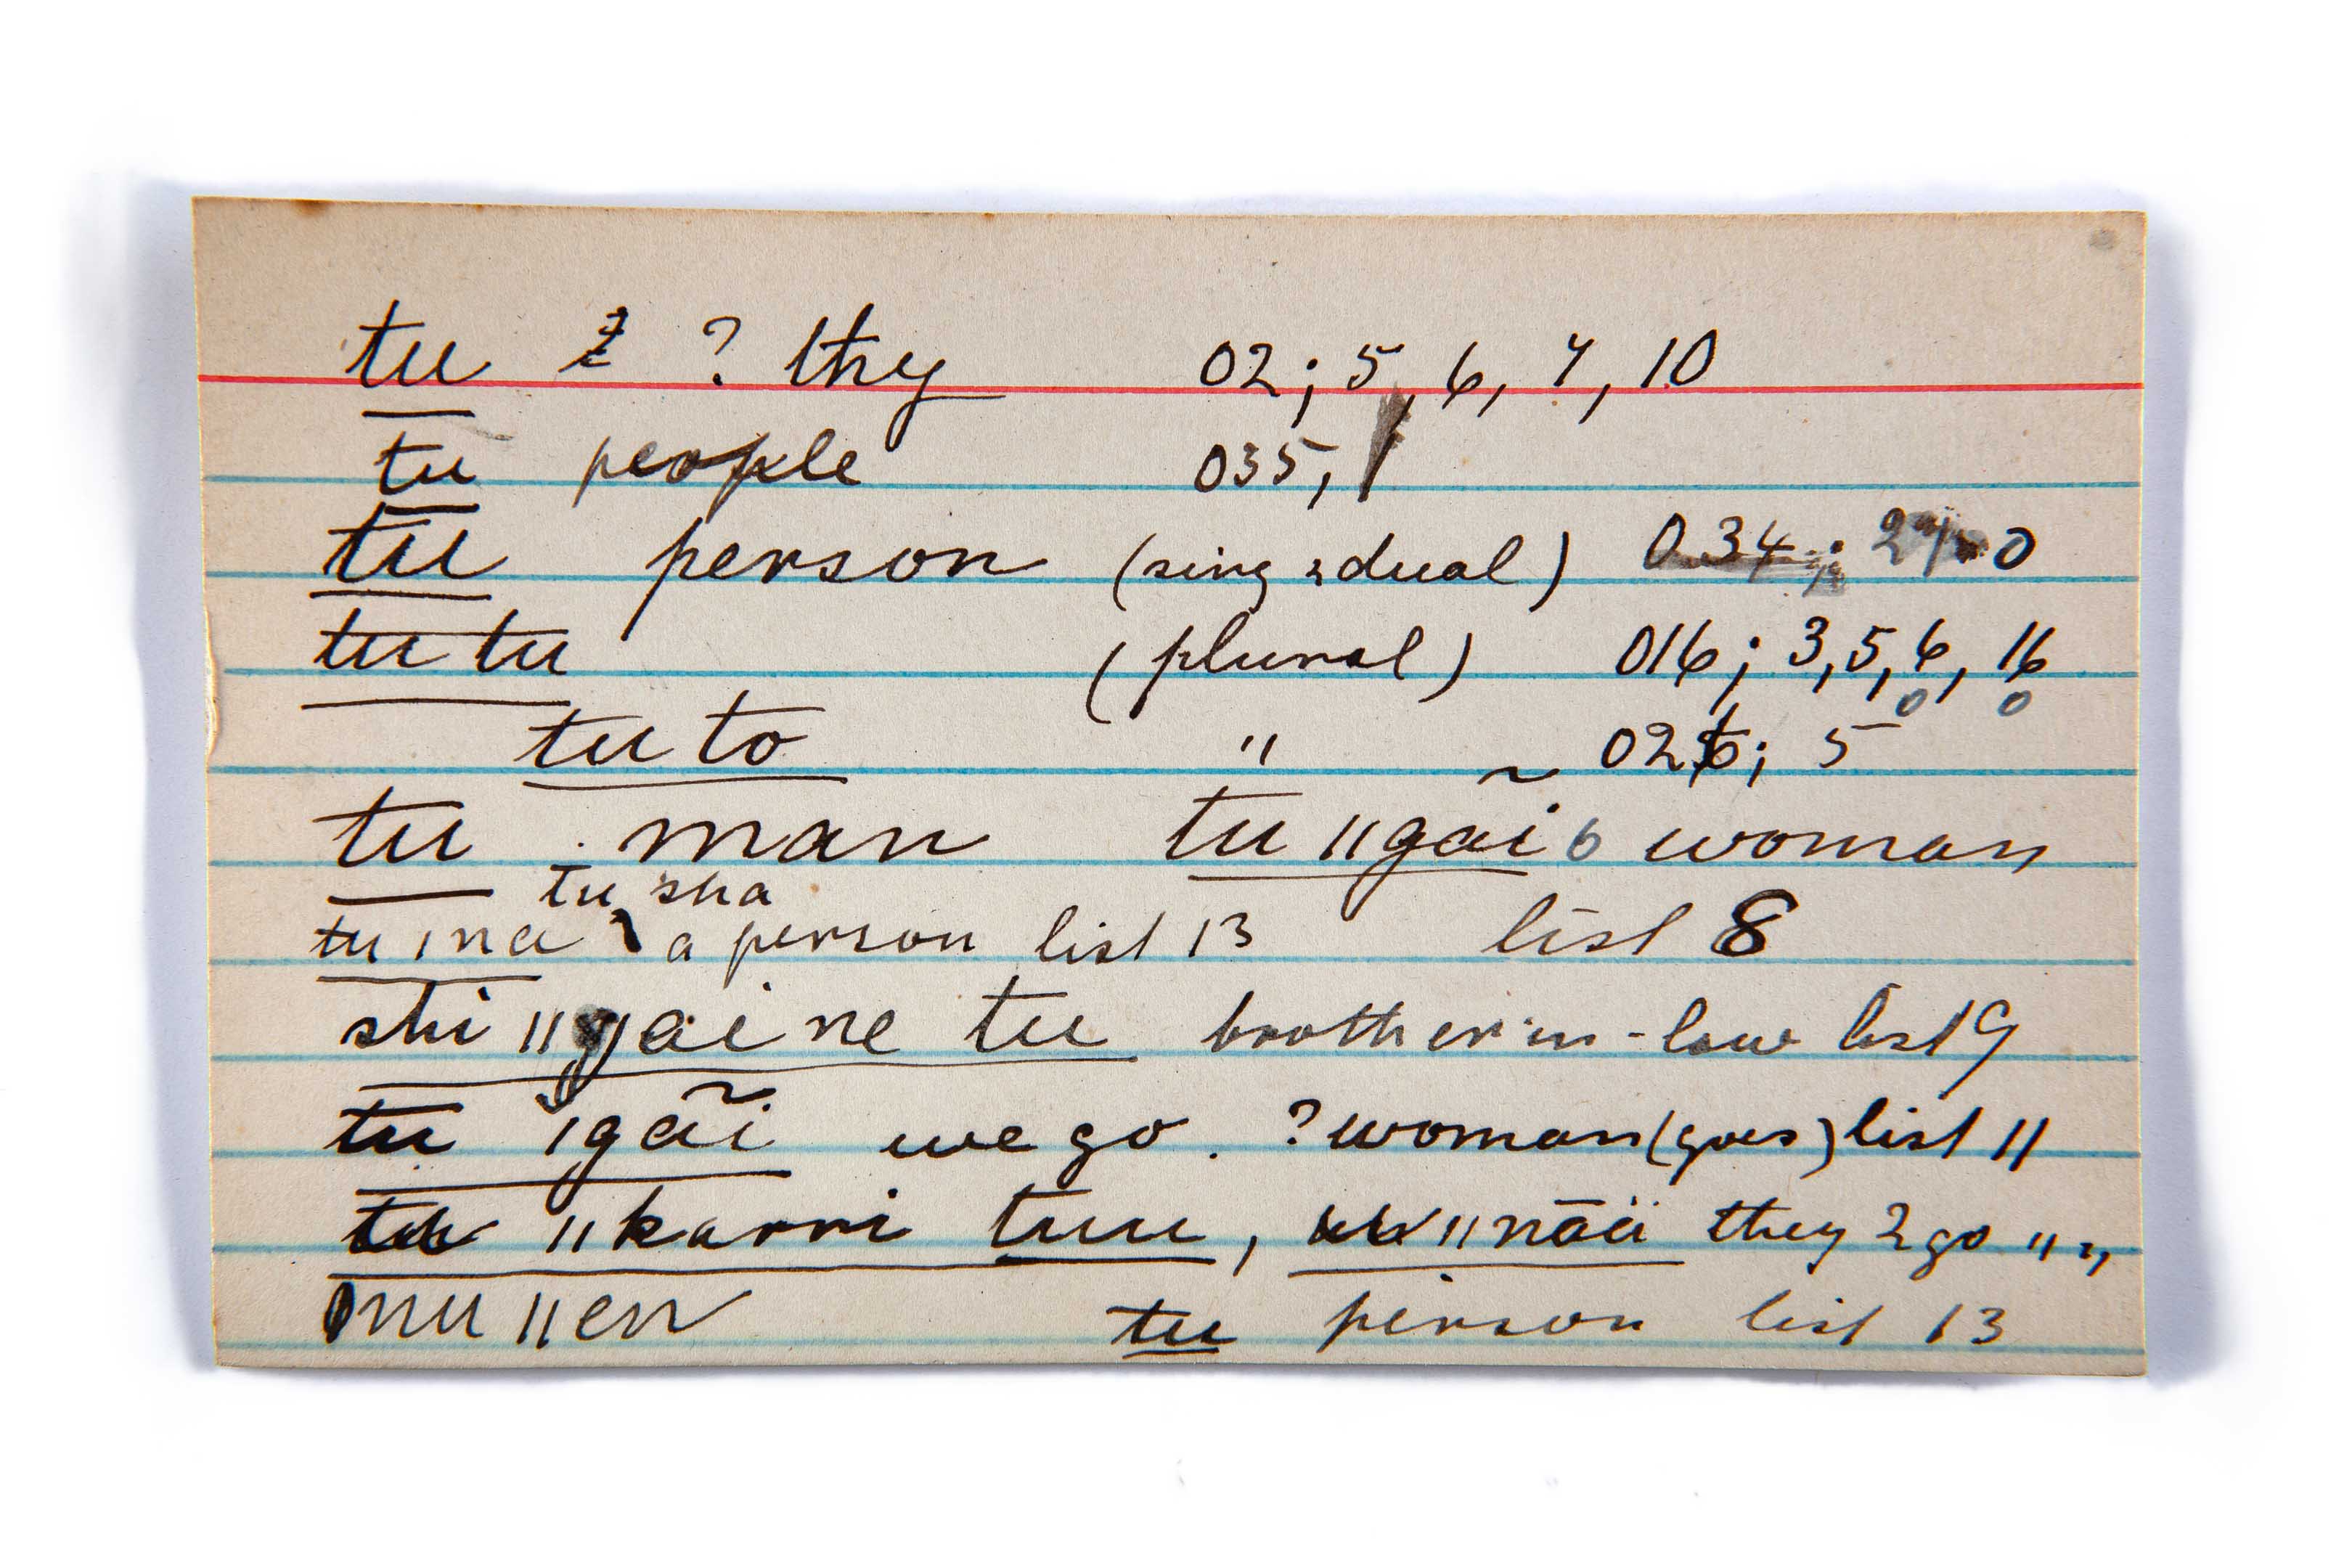 tu ? they 02; 5, 6, 7, 10
tu people 035, 1
tu person (sing & dual) 034; 0
tu tu (plural) 016; 3, 5, 6, 16
0 0
tu to " 026; 5
tu man tu ‖gãi woman
tu sha
tu ina a person list 13 list 8
shi ‖gai ne tu brother-in-law list 9
tu ǀgãi we go. ? woman (goes) list 11
‖karri tuu, ‖nāü they 2 go " "
nu ‖en tu person list 13